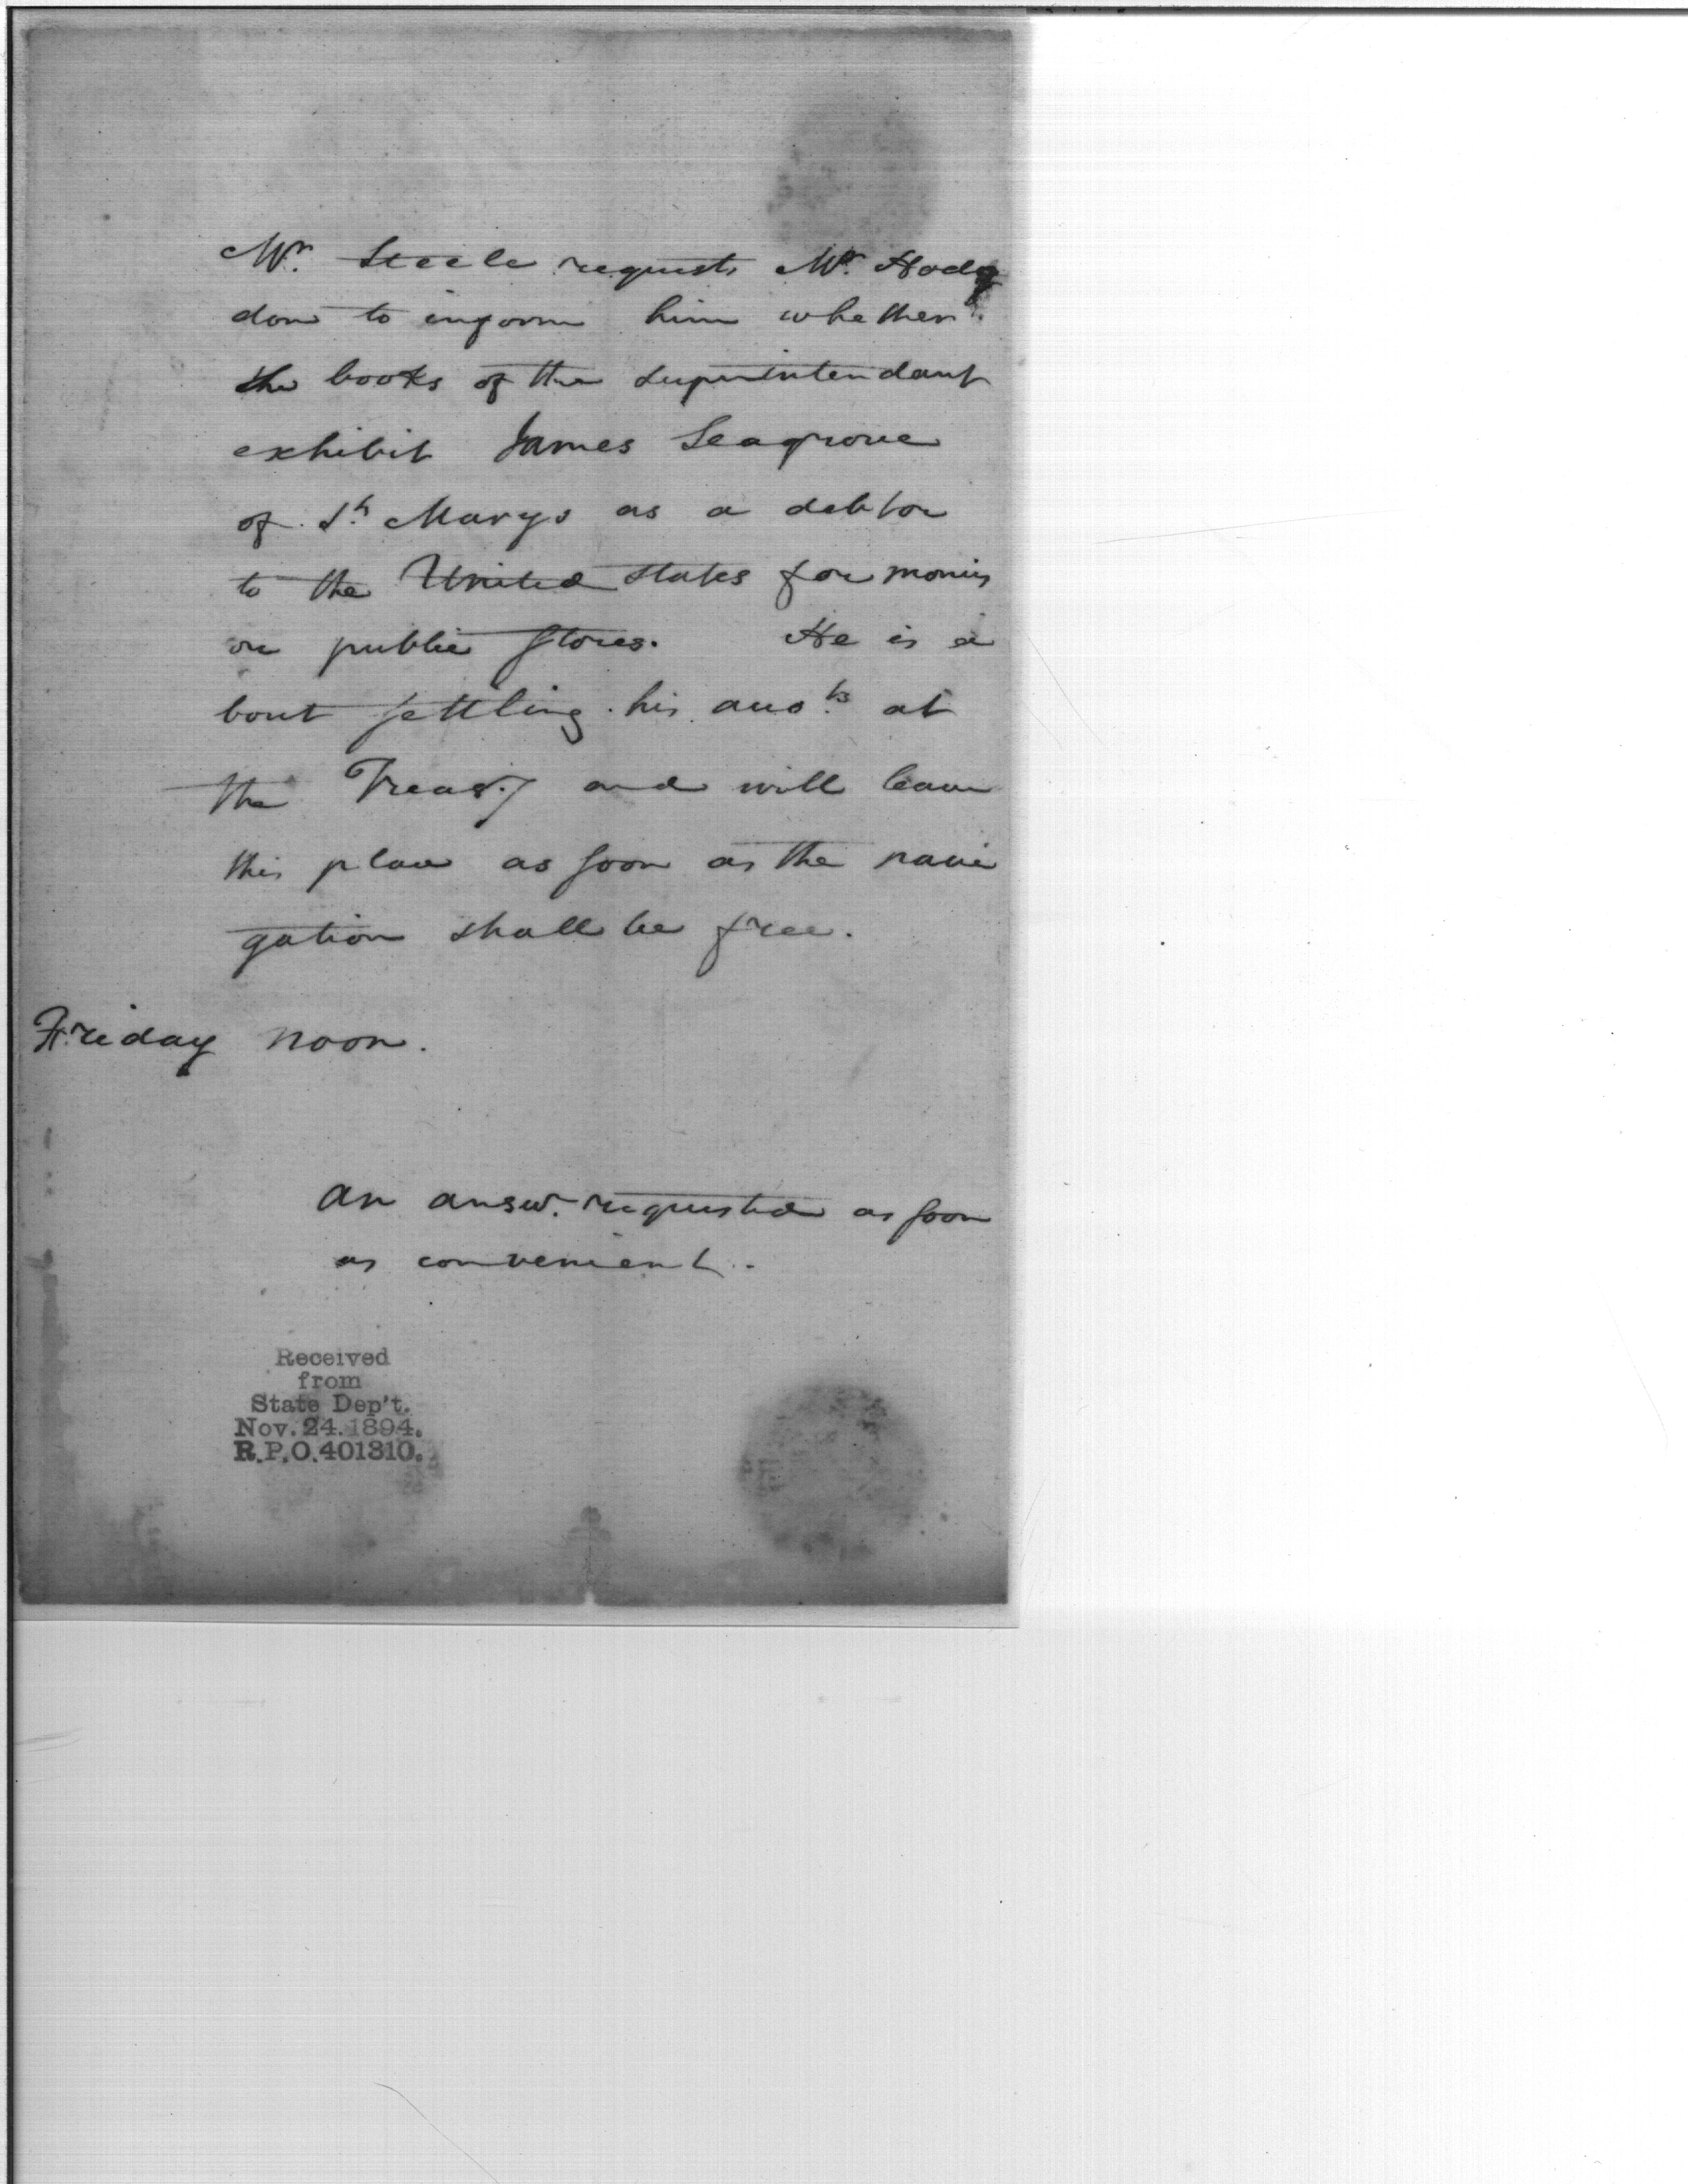 Mr. Steele requests Mr. Hodg
don to inform him whether
the books of the Superintendant
exhibit James Seagrove
of St. Marys as a debtor
to the United States for monies
or public stores. He is a
bout settling his accots. at
the Treasy. and will leave
this place as soon as the navi
gation shall be free.
Friday noon.
An answr. requested as soon
as convenient.
Received
from
State Dep't.
Nov. 24. 1894.
R.P.O. 401310.